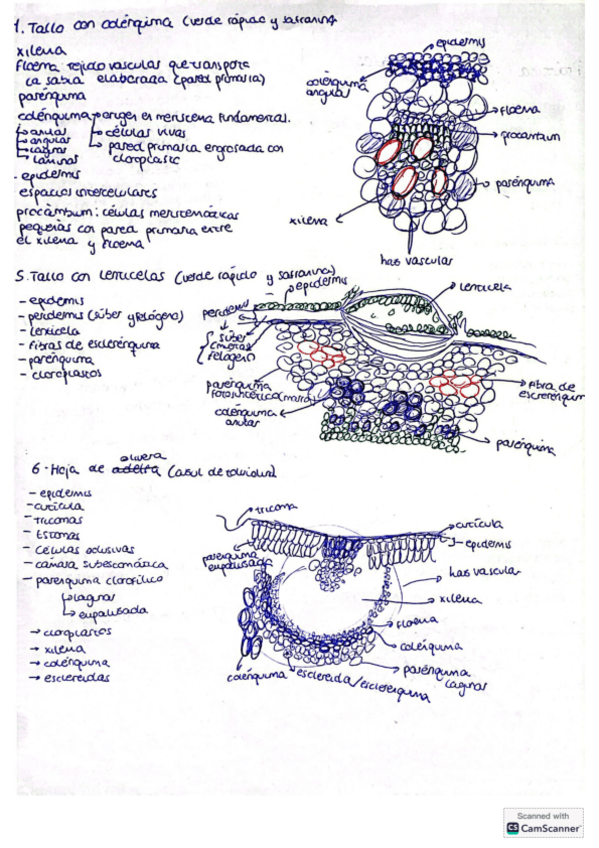 1. Tallo con colénqima (verde rápido y safranina
xilema
floema: tejido vascular que transporta
la sabia elaborada (pared primaria)
parénquima
colénquima → origen es meristema fundamental.
↳ anular
↳ células vivas
↳ angular
↳ lagunar
↳ pared primaria engrosada con
cloroplastic
- epidermis
espacios intercelulares
procámbum: células meristemáticas
pequeñas con pared primaria entre
el xilema y floema
epidermis
colénquima
angular
floema
procambium
parénquima
xilema
haz vascular
5. Tallo con lenticelas (verde rápido y safranina)
- epidermis
- peridermis (súber y felógeno)
- lenticela
- fibras de esclerénquima
- parénquima
- cloroplastos
peridermis
epidermis
lenticela
súber
felógen
parénquima
fotosintético
colénquima
anular
fibra de
esclerénquim
parénquima
6 - Hoja de adelfa olivera (azul de toluidina)
- epidermis
- cutícula
- Tricomas
- Estomas
- células oclusivas
- cámara subestomática
- parenquima clorofílico
↳ lagunar
↳ empalizada
→ cloroplastos
→ xilema
→ colénquima
→ esclereidas
tricoma
cutícula
epidermis
parénquima
empalizada
haz vascular
xilema
floema
colénquima
parénquima
lagunar
colénquima
esclereida/esclerénquima
Scanned with
CS CamScanner